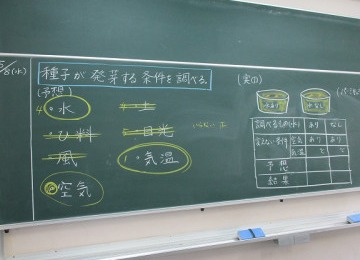 5/8(水)
種子が発芽する条件を調べる。
(予想)
・水
・土
・ひ料
・日光
・風
・気温
・空気
(実①)
水あり
水なし
調べるもの(水) あり なし
変えない条件 空気 あり あり
気温 ℃ ℃
予想
結果